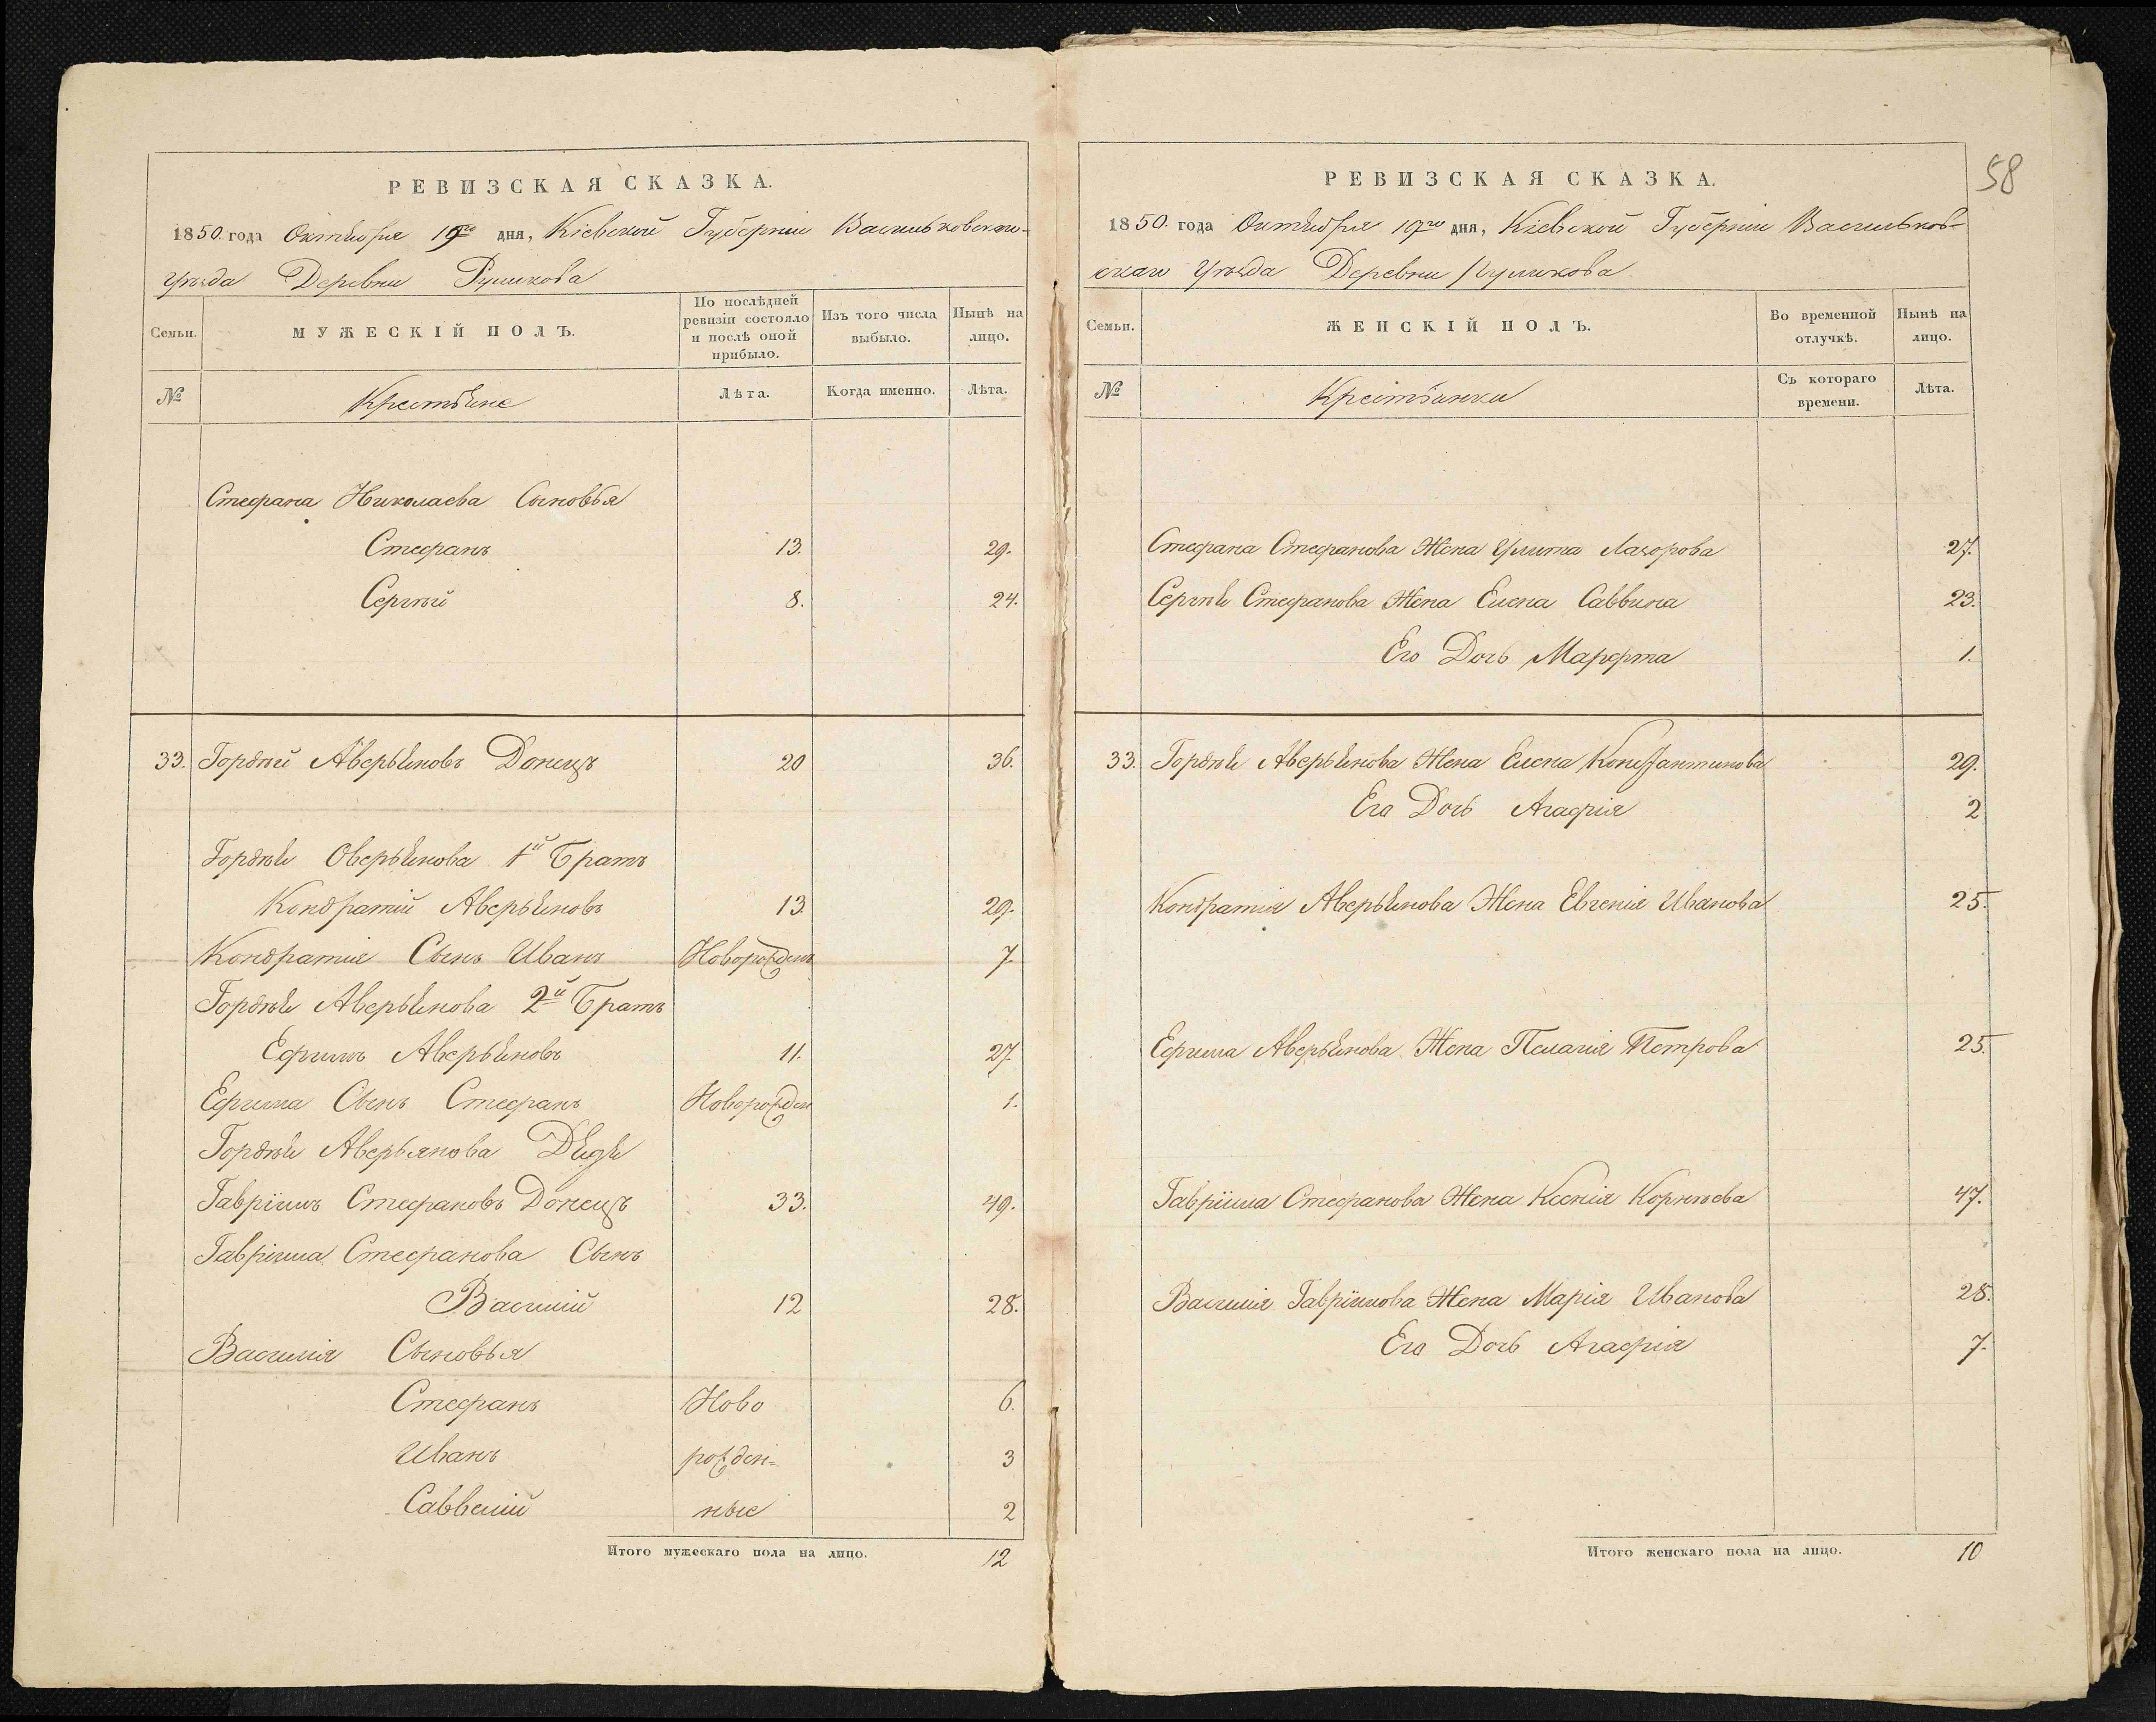 РЕВИЗСКАЯ СКАЗКА.
1850. года Октября 19го дня, Кіевской Губерніи Васильковскаго
уѣзда Деревни Руликова
Семьи.
МУЖЕСКІЙ ПОЛЪ.
По послѣдней ревизіи состояло и послѣ оной прибыло.
Изъ того числа выбыло.
Нынѣ на лицо.
№
Крестьяне
Лѣта.
Когда именно.
Лѣта.
Стефана Николаева Сыновья
Стефанъ 13. 29.
Сергѣй 8. 24.
33. Гордѣй Аверьяновъ Донецъ 20 36.
Гордѣя Оверьянова 1й Братъ
Кондратій Аверьяновъ 13 29.
Кондратія Сынъ Иванъ Новорожден 7.
Гордѣя Аверьянова 2й Братъ
Ефимъ Аверьяновъ 11. 27.
Ефима Сынъ Стефанъ Новорожден 1.
Гордѣя Аверьянова Дядя
Гавріилъ Стефановъ Донецъ 33. 49.
Гавріила Стефанова Сынъ
Василій 12 28.
Василія Сыновья
Стефанъ Ново 6.
Иванъ рожден= 3
Савелій ные 2
Итого мужескаго пола на лицо. 12
58
РЕВИЗСКАЯ СКАЗКА.
1850. года Октября 19го дня, Кіевской Губерніи Васильков-
скаго уѣзда Деревни Руликова
Семьи.
ЖЕНСКІЙ ПОЛЪ.
Во временной отлучкѣ.
Нынѣ на лицо.
№
Крестьянки
Съ котораго времени.
Лѣта.
Стефана Стефанова Жена Улита Лазорова 27.
Сергѣя Стефанова Жена Елена Саввина 23.
Его Дочь Марфа 1.
33. Гордѣя Аверьянова Жена Елена Константинова 29.
Его Дочь Агафія 2
Кондратія Аверьянова Жена Евгенія Иванова 25.
Ефима Аверьянова Жена Пелагія Петрова 25.
Гавріила Стефанова Жена Ксенія Корнѣева 47.
Василія Гавріилова Жена Марія Иванова 28.
Его Дочь Агафія 7.
Итого женскаго пола на лицо. 10